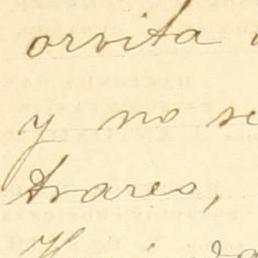 orvita
y no se
trares,